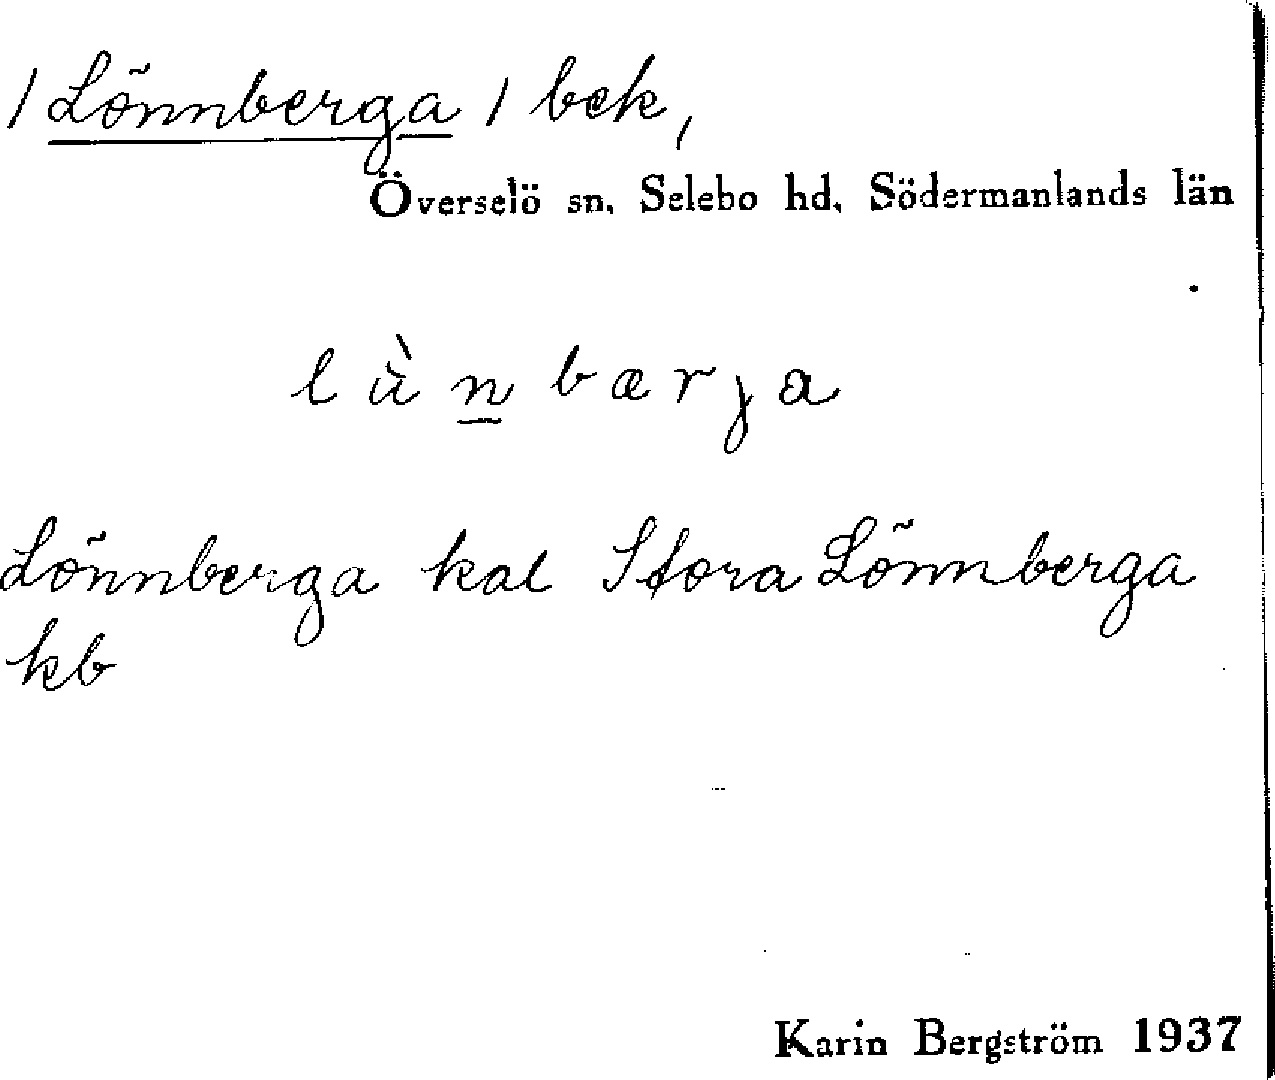 / Lönnberga / bek,
Överselö sn. Selebo hd. Södermanlands län
lùn̲bærȷa
Lönnberga kal Stora Lönnberga
kb
Karin Bergström 1937